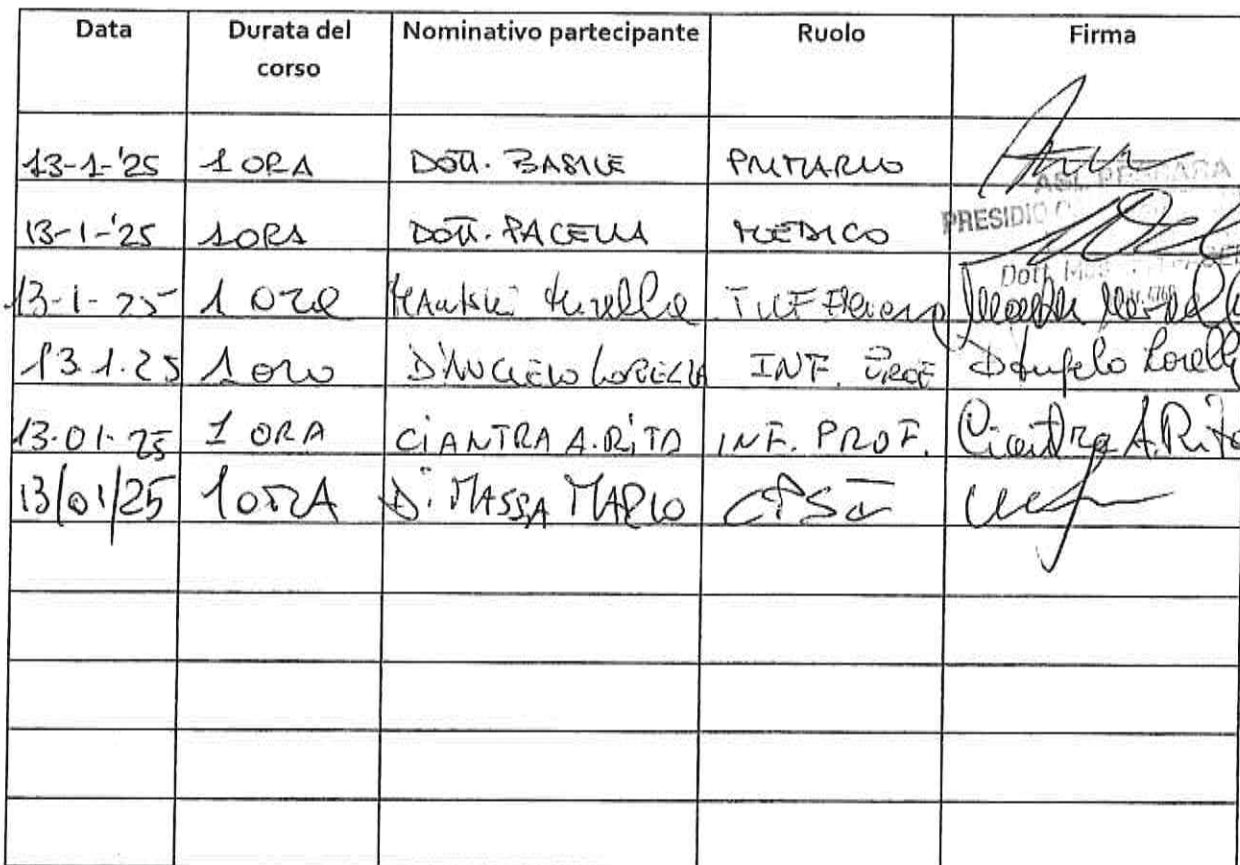 Data Durata del corso Nominativo partecipante Ruolo Firma
13-1-'25 1 ORA DOTT. BASILE PRIMARIO
ASL PESCARA
13-1-'25 1 ORA DOTT. PACELLA MEDICO
PRESIDIO
Dott.
13-1-25 1 ora
13.1.25 1 ora D'ANGELO LORELLA INF. PROF D'Angelo Lorella
13-01-25 1 ORA CIANTRA A. RITA INF. PROF. Ciantra A. Rita
13/01/25 1 ORA DI MASSA MARIO CPSI